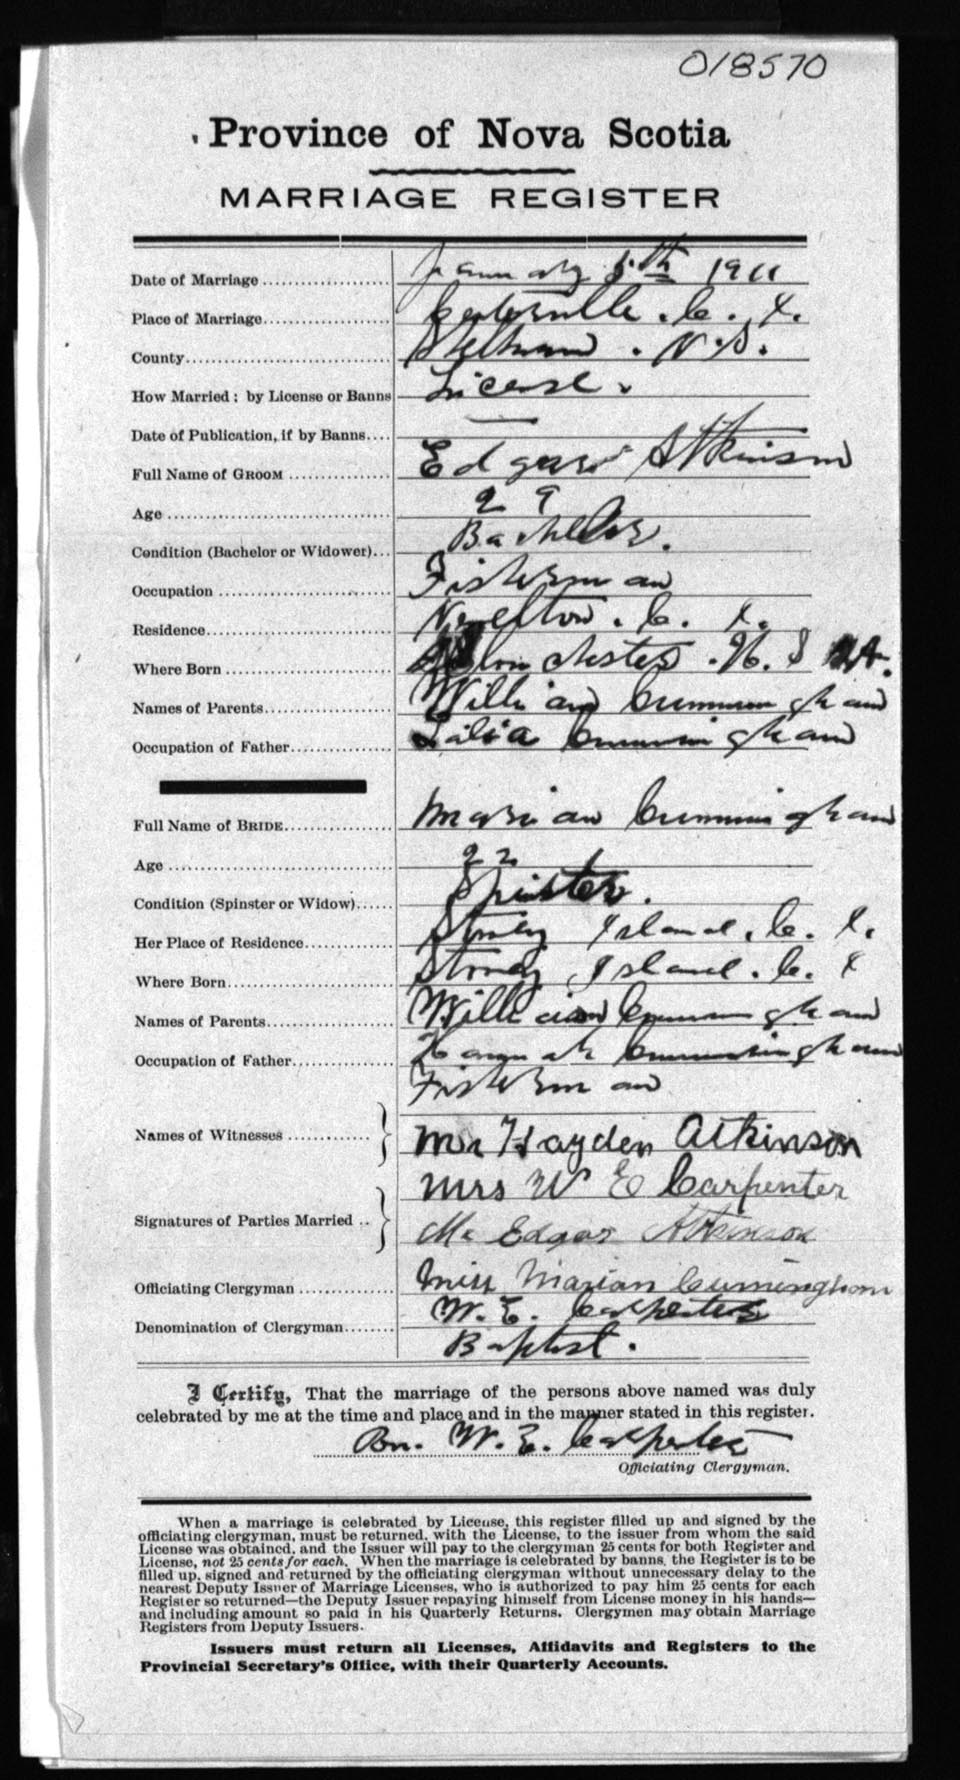 018570
Province of Nova Scotia
MARRIAGE REGISTER
Date of Marriage January 5th 1911
Place of Marriage Centerville. C. I.
County Shelburne. N.S.
How Married: by License or Banns License.
Date of Publication, if by Banns —
Full Name of GROOM Edgar Atkinson
Age 29
Condition (Bachelor or Widower) Bachelor.
Occupation Fisherman
Residence Newellton. C. I.
Where Born
Names of Parents William Cunningham
Occupation of Father Cunningham
Full Name of BRIDE Marian Cunningham
Age 22
Condition (Spinster or Widow) Spinster.
Her Place of Residence Stoney Island. C. I.
Where Born Stoney Island. C. I
Names of Parents William Cunningham
Occupation of Father Hannah Cunningham
Fisherman
Names of Witnesses Mr Hayden Atkinson
Mrs W E Carpenter
Signatures of Parties Married Mr Edgar Atkinson
Officiating Clergyman Miss Marian Cuningham
W. E. Carpenter
Denomination of Clergyman Baptist.
I Certify, That the marriage of the persons above named was duly
celebrated by me at the time and place and in the manner stated in this register.
W. E. Carpenter
Officiating Clergyman.
When a marriage is celebrated by License, this register filled up and signed by the
officiating clergyman, must be returned, with the License, to the issuer from whom the said
License was obtained, and the Issuer will pay to the clergyman 25 cents for both Register and
License, not 25 cents for each. When the marriage is celebrated by banns, the Register is to be
filled up, signed and returned by the officiating clergyman without unnecessary delay to the
nearest Deputy Issuer of Marriage Licenses, who is authorized to pay him 25 cents for each
Register so returned—the Deputy Issuer repaying himself from License money in his hands—
and including amount so paid in his Quarterly Returns. Clergymen may obtain Marriage
Registers from Deputy Issuers.
Issuers must return all Licenses, Affidavits and Registers to the
Provincial Secretary's Office, with their Quarterly Accounts.